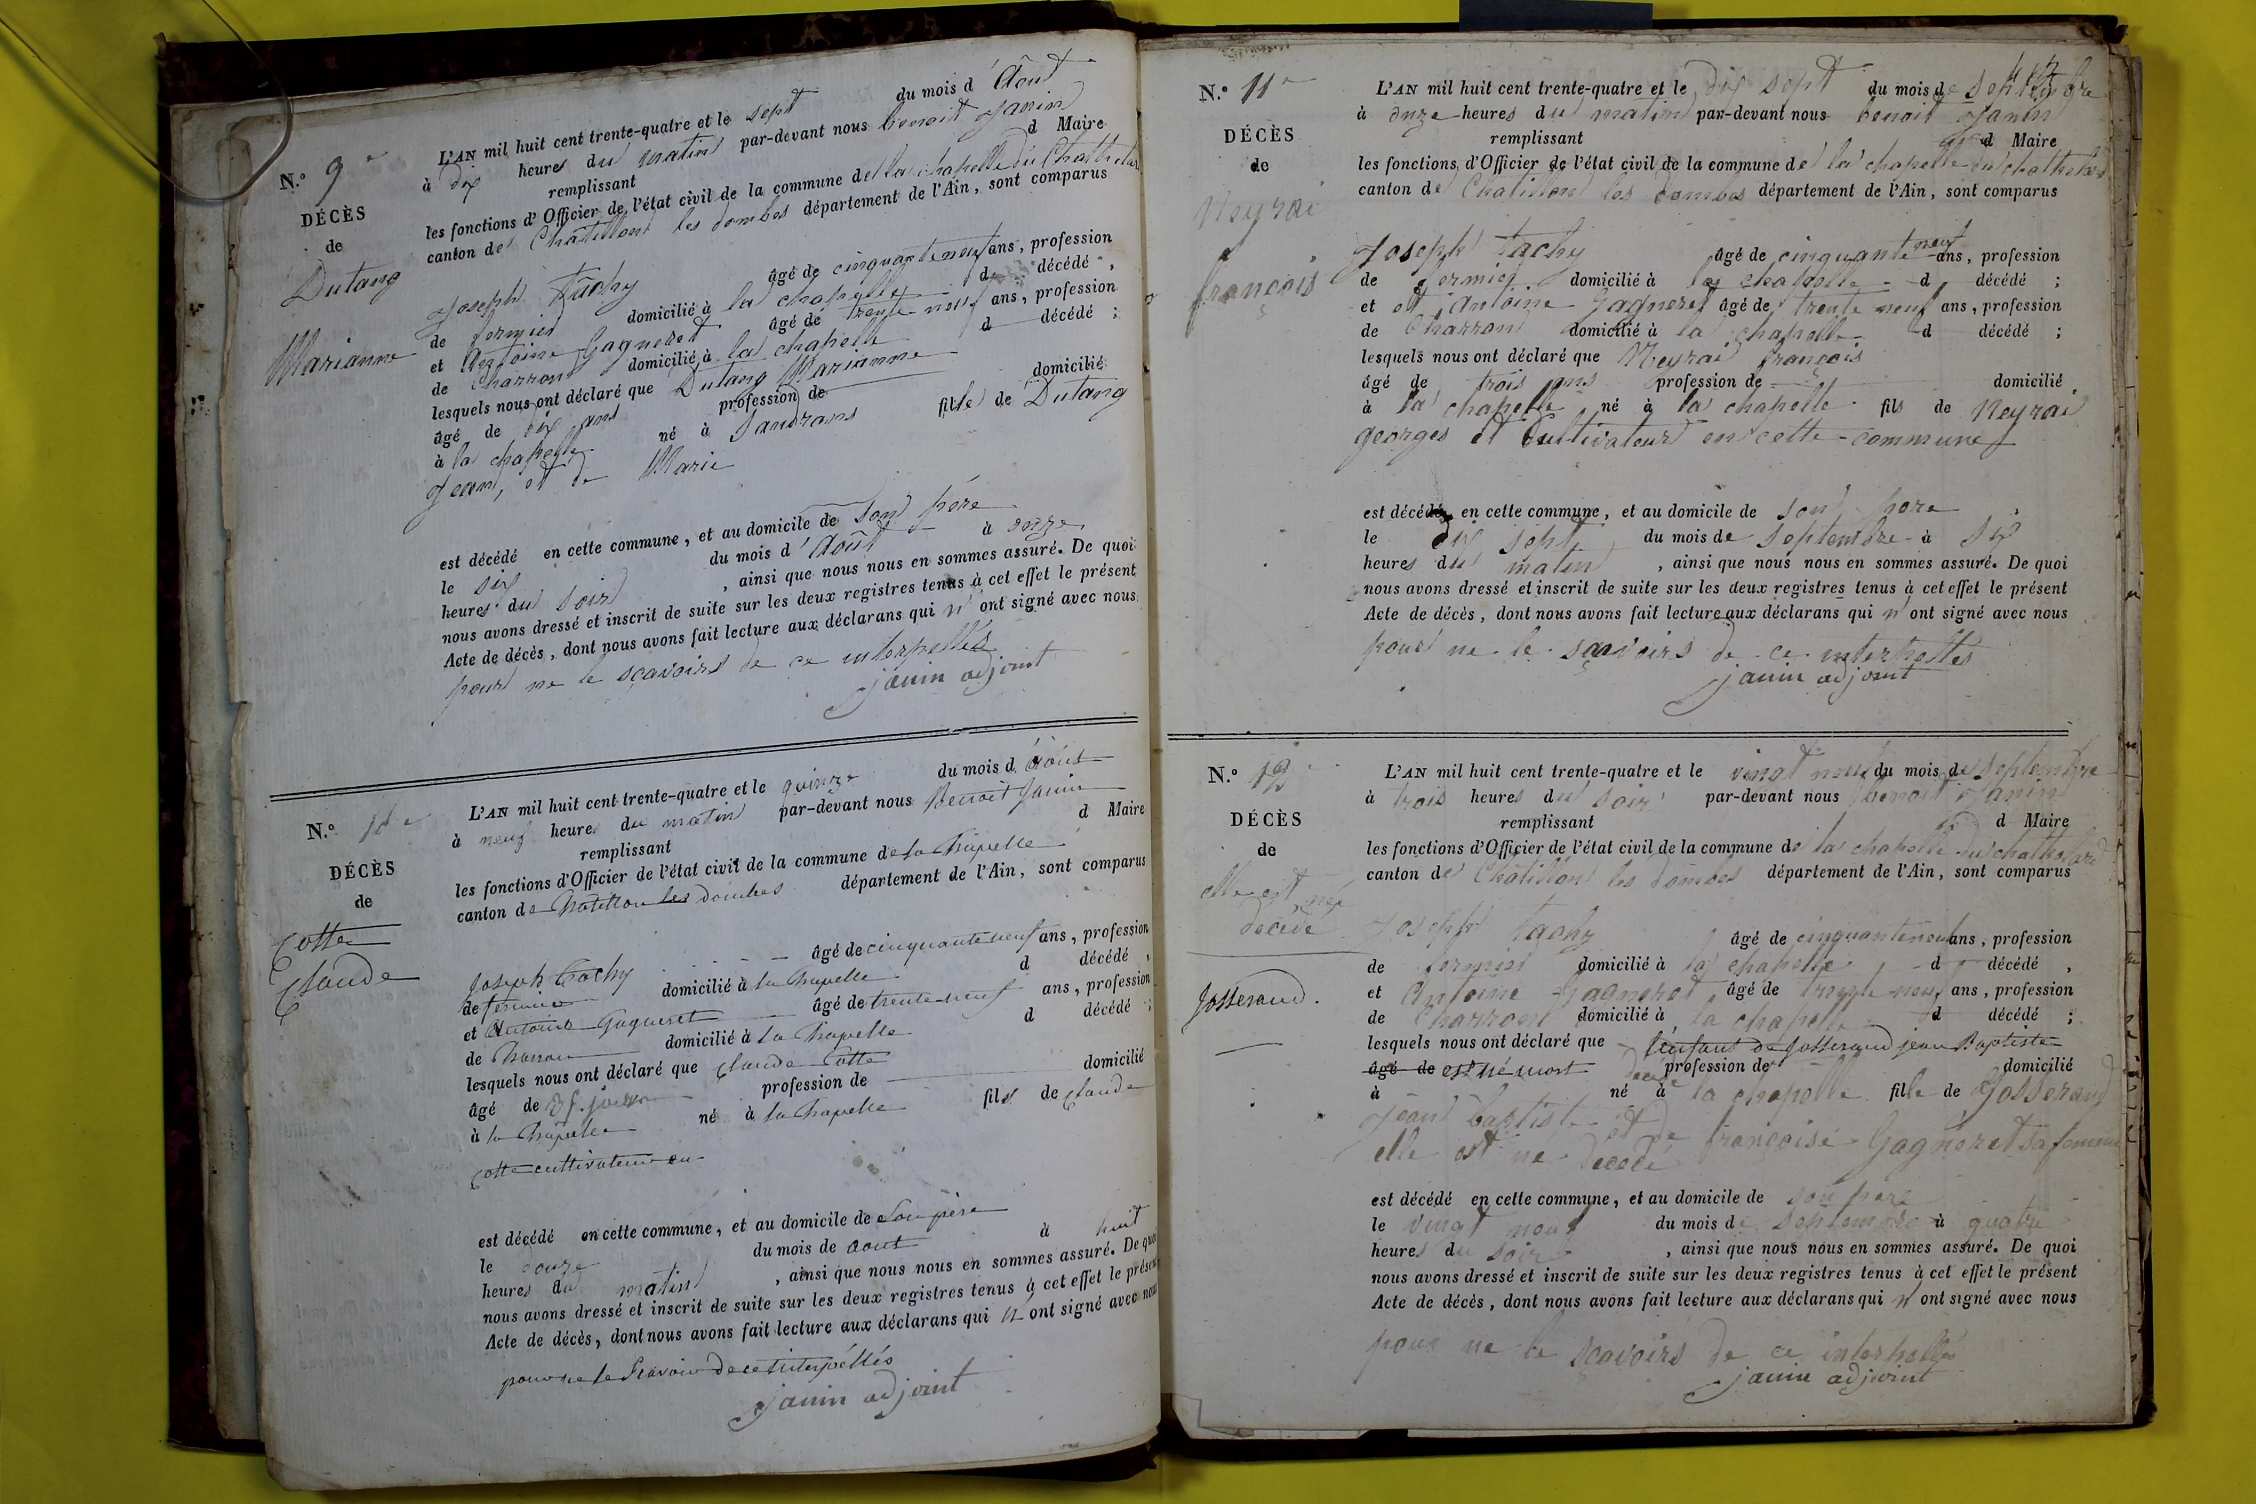 N.º 9e
DÉCÈS
de
Dutang
Marianne
L'AN mil huit cent trente-quatre et le sept du mois d'Août
à dix heures du matin par-devant nous benoit Janin
remplissant d Maire
les fonctions d'Officier de l'état civil de la commune de la chapelle du Chathelard
canton de Châtillon les dombes département de l'Ain, sont comparus
Joseph Tachy âgé de cinquante neuf ans, profession
de fermier domicilié à la chapelle d décédé,
et Antoine Gagneret âgé de trente neuf ans, profession
de Charron domicilié à la chapelle d décédé;
lesquels nous ont déclaré que Dutang Marianne
âgé de dix ans profession de domicilié
à la chapelle né à Sandrans fille de Dutang
Jean, et de Marie
est décédé en cette commune, et au domicile de son père
le six du mois d'Août à onze
heures du soir, ainsi que nous nous en sommes assuré. De quoi
nous avons dressé et inscrit de suite sur les deux registres tenus à cet effet le présent
Acte de décès, dont nous avons fait lecture aux déclarans qui n'ont signé avec nous
pour ne le sçavoirs de ce interpellés
janin adjoint
N.º 10e
DÉCÈS
de
Cotte
Claude
L'AN mil huit cent trente-quatre et le quinze du mois d'août
à neuf heures du matin par-devant nous Benoit Janin
remplissant d Maire
les fonctions d'Officier de l'état civil de la commune de la Chapelle
canton de Chatillon les dombes département de l'Ain, sont comparus
Joseph Tachy âgé de cinquante neuf ans, profession
de fermier domicilié à la Chapelle d décédé,
et Antoine Gagneret âgé de trente-neuf ans, profession
de Charron domicilié à la Chapelle d décédé;
lesquels nous ont déclaré que Claude Cotte
âgé de jours profession de domicilié
à la Chapelle né à la Chapelle fils de Claude
Cotte cultivateur
est décédé en cette commune, et au domicile de Son père
le du mois de aout à huit
heures du matin, ainsi que nous nous en sommes assuré. De quoi
nous avons dressé et inscrit de suite sur les deux registres tenus à cet effet le présent
Acte de décès, dont nous avons fait lecture aux déclarans qui n'ont signé avec nous
pour ne le Scavoir de ce interpéllés
janin adjoint
N.º 11e
DÉCÈS
de
Neyrai
françois
L'AN mil huit cent trente-quatre et le dix sept du mois de septembre
à onze heures du matin par-devant nous benoit Janin
remplissant d Maire
les fonctions d'Officier de l'état civil de la commune de la chapelle du chathelard
canton de Chatillon les dombes département de l'Ain, sont comparus
Joseph Tachy âgé de cinquante neuf ans, profession
de fermier domicilié à la chapelle d décédé;
et et Antoine Gagneret âgé de trente neuf ans, profession
de Charron domicilié à la chapelle d décédé;
lesquels nous ont déclaré que Neyrai françois
âgé de trois ans profession de domicilié
à la chapelle né à la chapelle fils de Neyrai
georges et Cultivateur en cette commune
est décédé en cette commune, et au domicile de son pere
le dix sept du mois de septembre à six
heures du matin, ainsi que nous nous en sommes assuré. De quoi
nous avons dressé et inscrit de suite sur les deux registres tenus à cet effet le présent
Acte de décès, dont nous avons fait lecture aux déclarans qui n'ont signé avec nous
pour ne le sçavoirs de ce interpellés
janin adjoint
N.º 12
DÉCÈS
de
elle est né
decede
Josserand.
L'AN mil huit cent trente-quatre et le vingt neuf du mois de septembre
à trois heures du soir par-devant nous benoit Janin
remplissant d Maire
les fonctions d'Officier de l'état civil de la commune de la chapelle du chathelard
canton de Châtillon les dombes département de l'Ain, sont comparus
Joseph Tachy âgé de cinquante neuf ans, profession
de fermier domicilié à la chapelle d décédé,
et Antoine Gagneret âgé de trente neuf ans, profession
de Charron domicilié à la chapelle d décédé;
lesquels nous ont déclaré que l'enfant de Josserand jean Baptiste
âgé de est né mort profession de domicilié
à né à la chapelle fille de Josserand
Jean baptiste et de françoise Gagneret sa femme
elle est né decedé
est décédé en cette commune, et au domicile de son pere
le vingt neuf du mois de septembre à quatre
heures du soir, ainsi que nous nous en sommes assuré. De quoi
nous avons dressé et inscrit de suite sur les deux registres tenus à cet effet le présent
Acte de décès, dont nous avons fait lecture aux déclarans qui n'ont signé avec nous
pour ne le sçavoirs de ce interpellés
janin adjoint